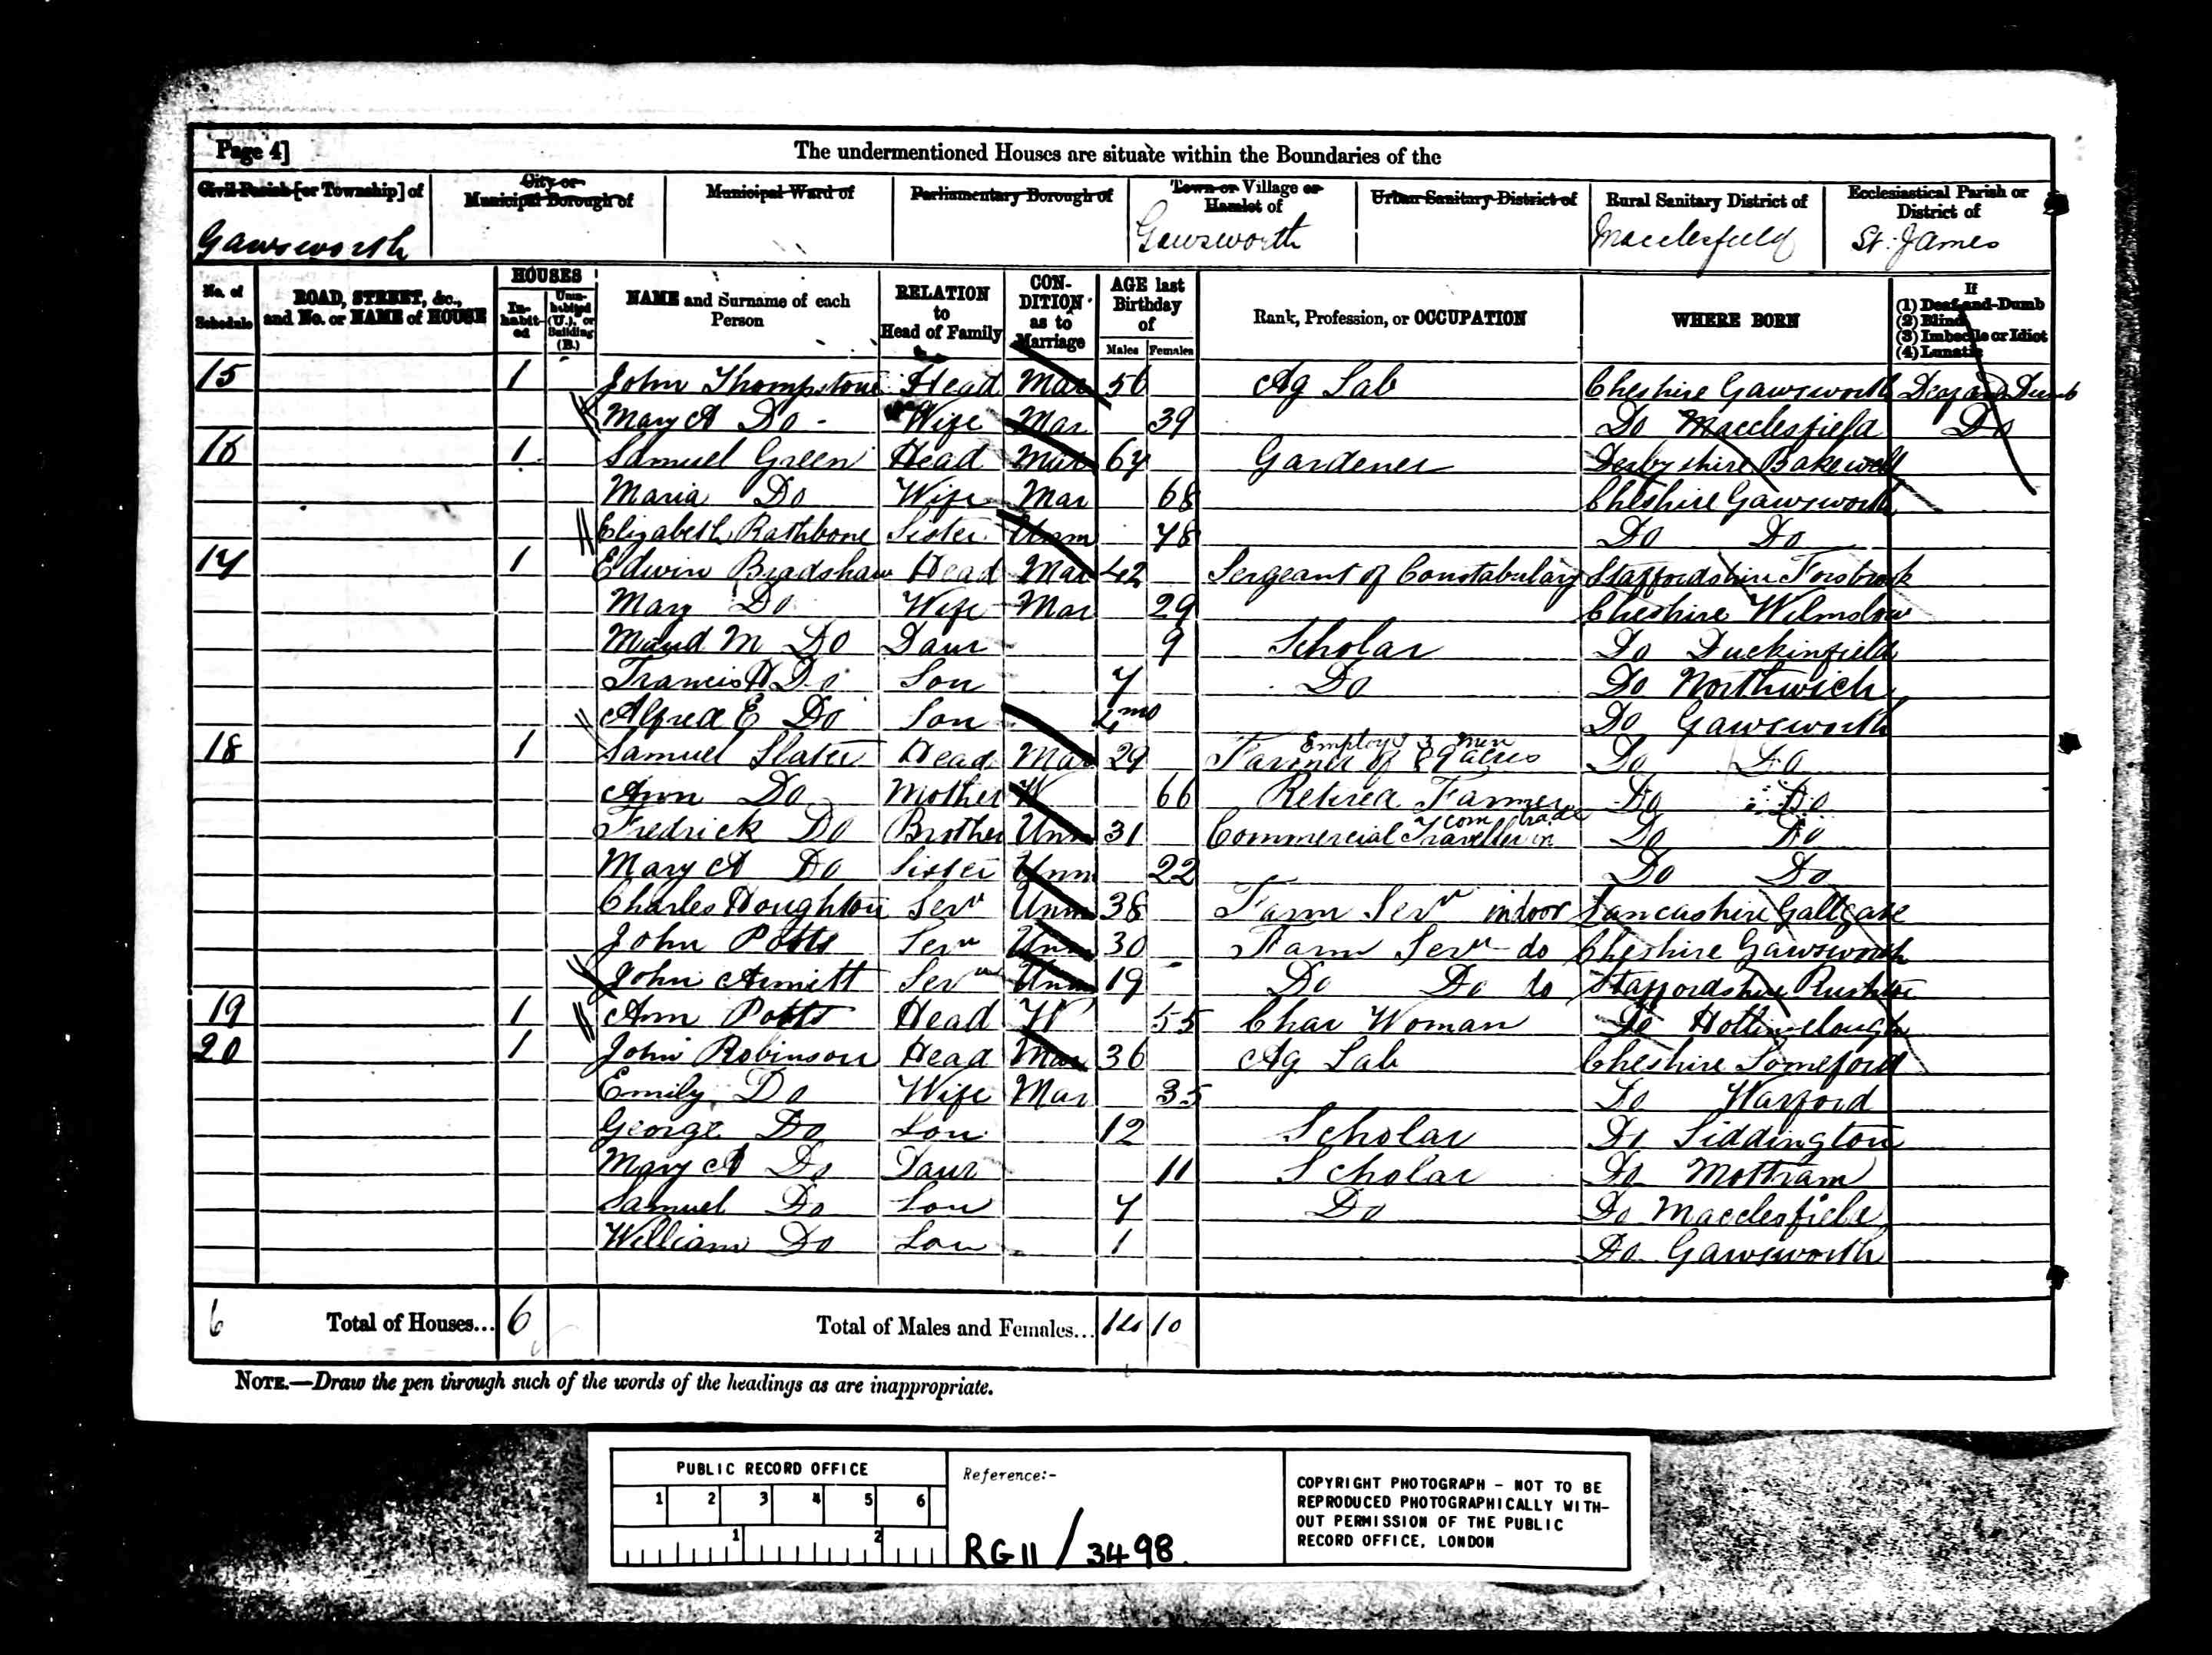 Page 4]
The undermentioned Houses are situate within the Boundaries of the
Civil Parish [or Township] of
City or Municipal Borough of
Municipal Ward of
Parliamentary Borough of
Town or Village or Hamlet of
Urban Sanitary District of
Rural Sanitary District of
Ecclesiastical Parish or District of
Gawsworth Gawsworth Macclesfield St. James
No. of Schedule
ROAD, STREET, &c., and No. or NAME of HOUSE
HOUSES
In-habit-ed
Unin-habited (U.), or Building (B.)
NAME and Surname of each Person
RELATION to Head of Family
CON-DITION as to Marriage
AGE last Birthday of
Males Females
Rank, Profession, or OCCUPATION
WHERE BORN
If
(1) Deaf-and-Dumb
(2) Blind
(3) Imbecile or Idiot
(4) Lunatic
15 1 John Thompstone Head Mar 56 Ag Lab Cheshire Gawsworth Deaf and Dumb
Mary A Do Wife Mar 39 Do Macclesfield Do
16 1 Samuel Green Head Mar 67 Gardener Derbyshire Bakewell
Maria Do Wife Mar 68 Cheshire Gawsworth
Elizabeth Rathbone Sister Unm 78 Do Do
17 1 Edwin Bradshaw Head Mar 42 Sergeant of Constabulary Staffordshire Forsbrook
Mary Do Wife Mar 29 Cheshire Wilmslow
Maud M Do Daur 9 Scholar Do Duckinfield
Francis H Do Son 7 Do Do Northwich
Alfred E Do Son 4 mo Do Gawsworth
18 1 Samuel Slater Head Mar 29 Farmer of 89 acres Employs 3 men Do Do
Ann Do Mother W 66 Retired Farmer Do Do
Fredrick Do Brother Unm 31 Commercial Traveller in corn trade Do Do
Mary A Do Sister Unm 22 Do Do
Charles Houghton Servt Unm 38 Farm Servt indoor Lancashire
John Potts Servt Unm 30 Farm Servt do Cheshire Gawsworth
John Armitt Servt Unm 19 Do Do do Staffordshire Rushton
19 1 Ann Potts Head W 55 Char Woman Do Hollinsclough
20 1 John Robinson Head Mar 36 Ag Lab Cheshire Someford
Emily Do Wife Mar 35 Do Warford
George Do Son 12 Scholar Do Siddington
Mary A Do Daur 11 Scholar Do Mottram
Samuel Do Son 7 Do Do Macclesfield
William Do Son 1 Do Gawsworth
6 Total of Houses... 6 Total of Males and Females... 14 10
NOTE.—Draw the pen through such of the words of the headings as are inappropriate.
PUBLIC RECORD OFFICE
1 2 3 4 5 6
1 2
Reference:-
RG 11 / 3498
COPYRIGHT PHOTOGRAPH - NOT TO BE
REPRODUCED PHOTOGRAPHICALLY WITH-
OUT PERMISSION OF THE PUBLIC
RECORD OFFICE, LONDON